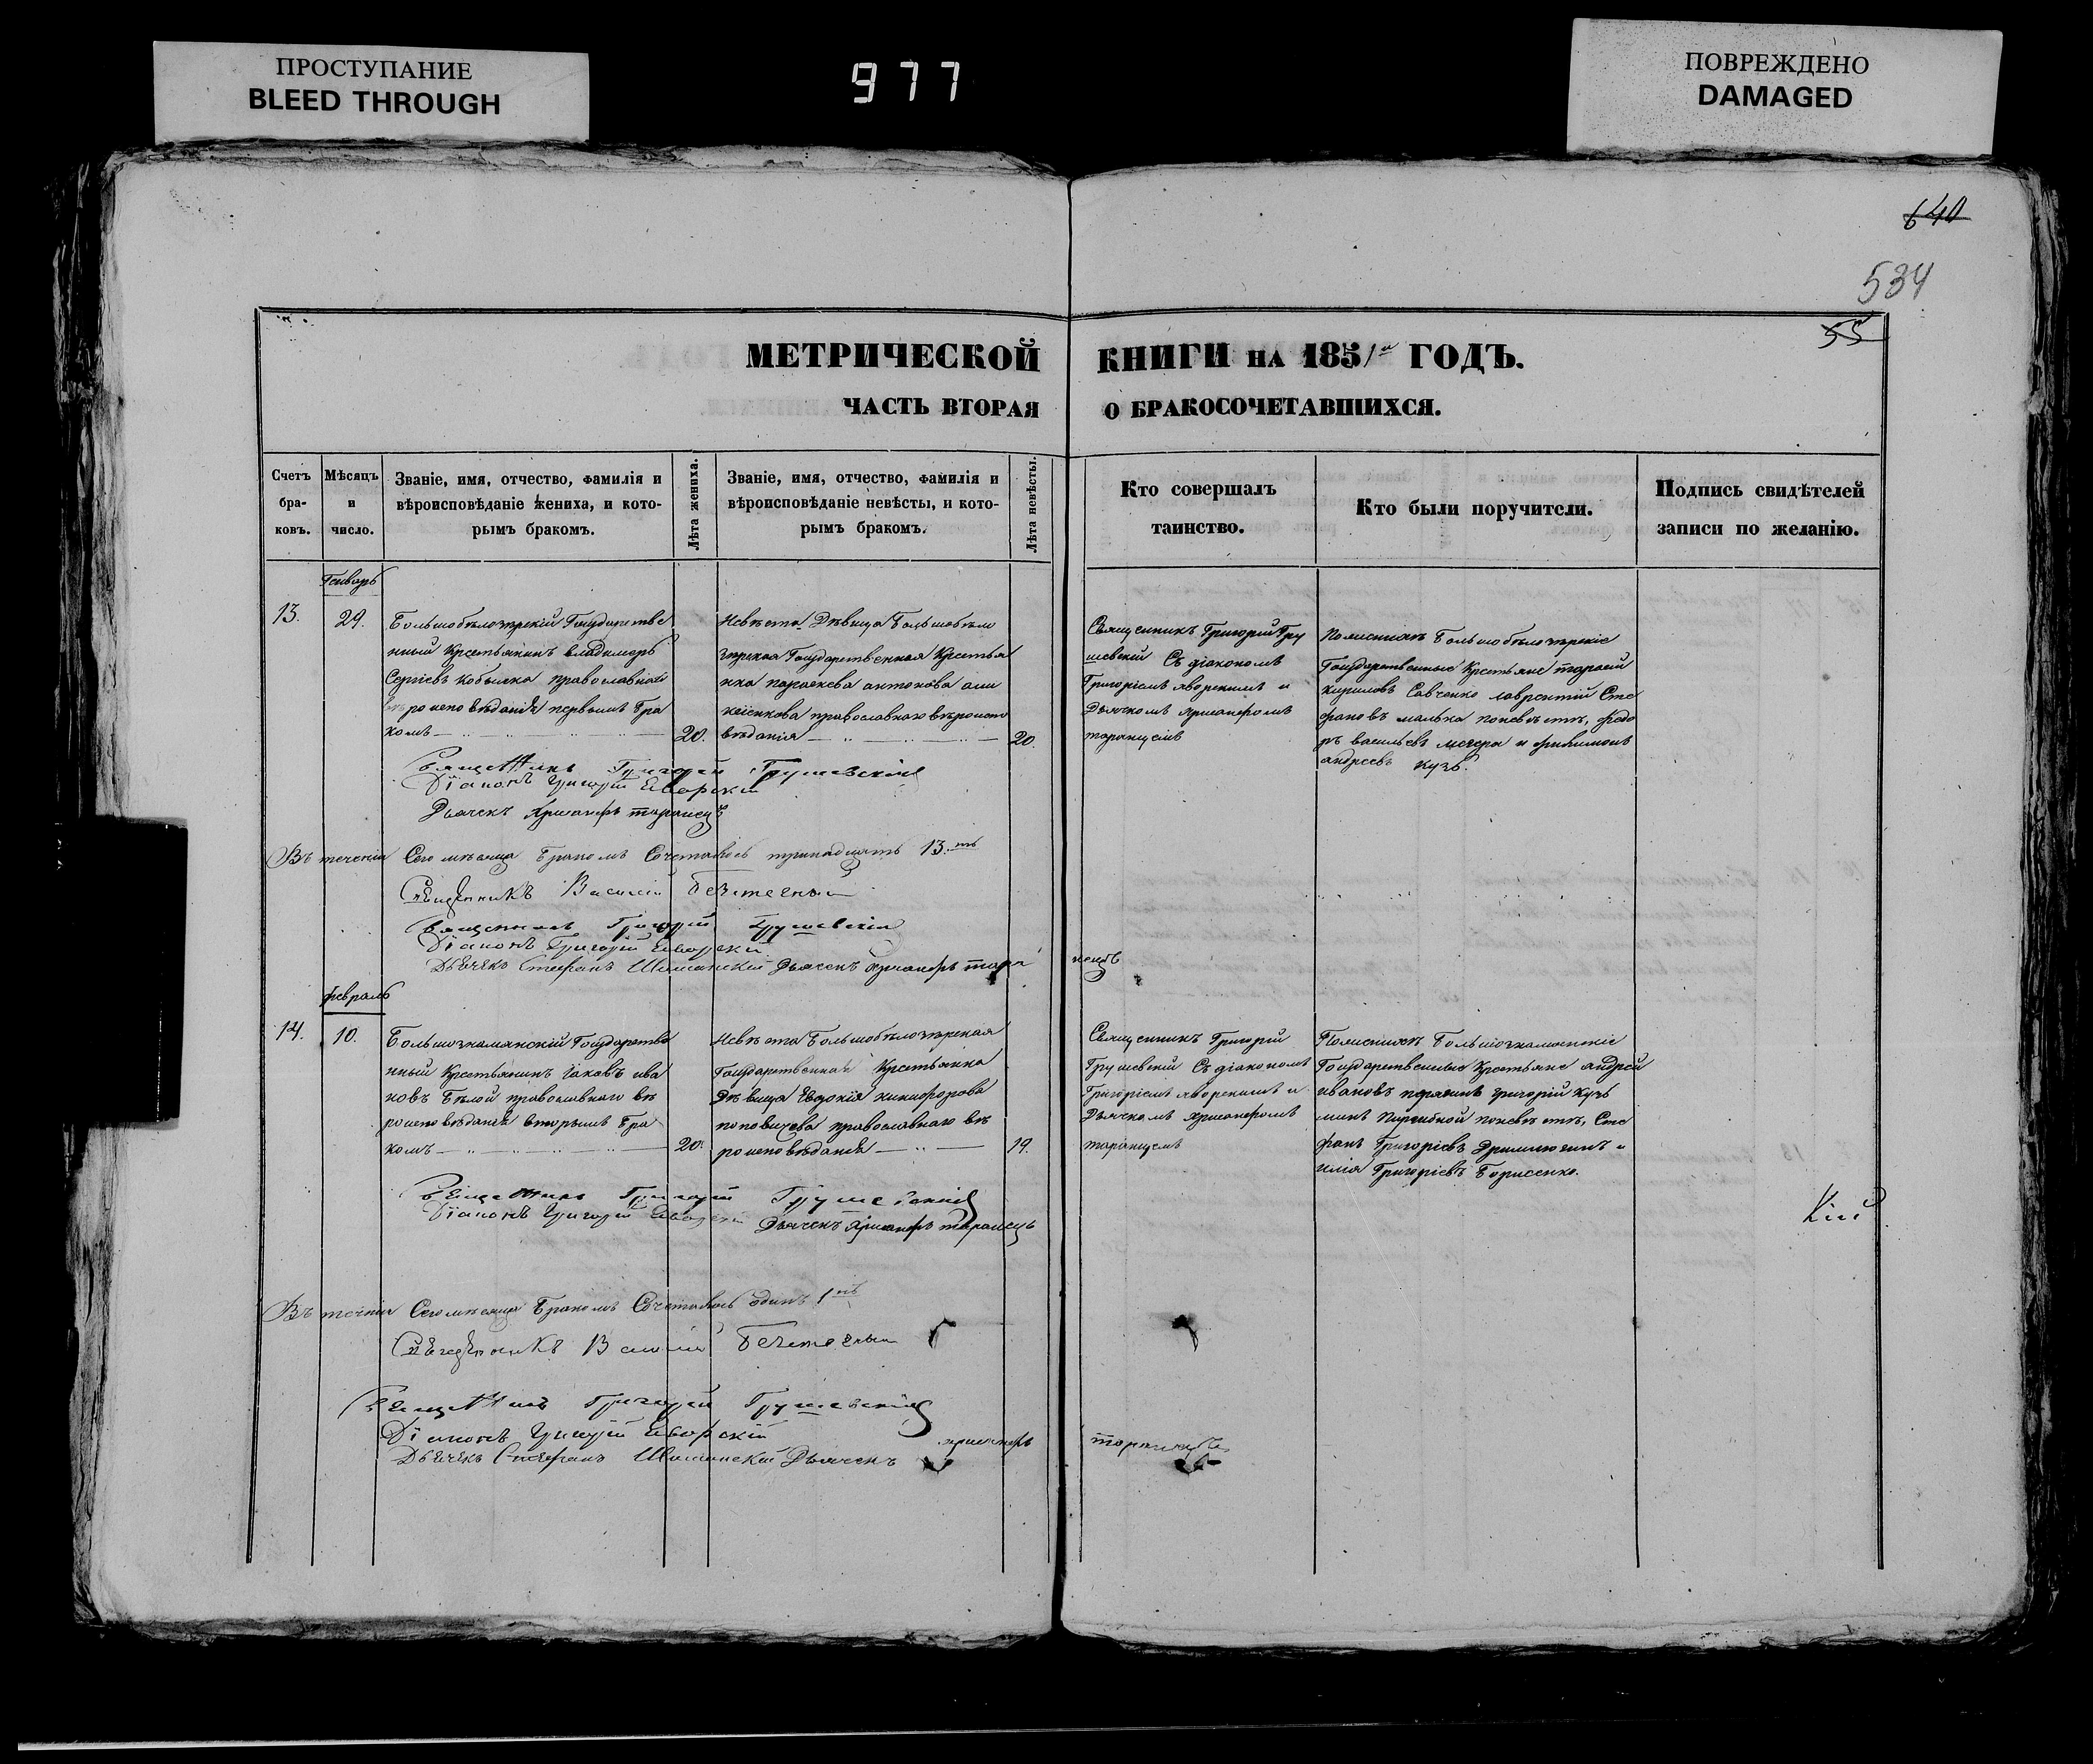 ПРОСТУПАНИЕ
BLEED THROUGH
977
ПОВРЕЖДЕНО
DAMAGED
640
534
55
МЕТРИЧЕСКОЙ КНИГИ НА 1851й ГОДЪ.
ЧАСТЬ ВТОРАЯ О БРАКОСОЧЕТАВШИХСЯ.
Счетъ
бра-
ковъ.
Мѣсяцъ
и
число.
Званіе, имя, отчество, фамилія и
вѣроисповѣданіе жениха, и кото-
рымъ бракомъ.
Лѣта жениха.
Званіе, имя, отчество, фамилія и
вѣроисповѣданіе невѣсты, и кото-
рымъ бракомъ.
Лѣта невѣсты.
Кто совершалъ
таинство.
Кто были поручители.
Подпись свидѣтелей
записи по желанію.
Генварь
13.
29.
Большобѣлозѣрскій Государстве
нный Крестьянинъ владимеръ
Сергіевъ Кобылка православнаго
вѣроисповѣданія первымъ бра
комъ
20.
Невѣста Дѣвица Большобѣло
зѣрская Государственная Крестья
нка параскева антонова
православнаго вѣроиспо
вѣданія
20.
Священникъ Григорій Гру
шевскій Съ діакономъ
Григоріемъ яворскимъ и
Дьячкомъ Хрисанфомъ
таранцемъ
По женихѣ Большобѣлозѣрскіе
Государственные Крестьяне тарасій
кириловъ Савченко лаврентій Сте
фановъ малька по невѣстѣ, федо
ръ васильевъ мочера и филимонъ
андреевъ кузь.
Священникъ Григорій Грушевскій
Діаконъ Григорій Яворскій
Дьячекъ Хрисанфъ таранецъ
Въ теченіи Сего мѣсяца бракомъ Сочеталось тринадцать 13.ть
Священникъ Василій
Священникъ Григорій Грушевскій
Діаконъ Григорій Яворскій
Дьячекъ Стефанъ Шиманскій Дьячекъ Хрисанфъ тара нецъ
февраль
14.
10.
Большознаменскій Государстве
нный Крестьянинъ Іаковъ ива
новъ Бѣлой православнаго вѣ
роисповѣданія вторымъ бра
комъ
20.
Невѣста Большобѣлозѣрская
Государственная Крестьянка
Дѣвица Евдокія никифорова
поповичева православнаго вѣ
роисповѣданія
19.
Священникъ Григорій
Грушевскій Съ діакономъ
Григоріемъ яворскимъ и
Дьячкомъ Хрисанфомъ
таранцемъ
По женихѣ Большознаменскіе
Государственные Крестьяне андрей
ивановъ григорій кузь
минъ по невѣстѣ, Сте
фанъ Григоріевъ и
илія Григоріевъ Борисенко.
Священникъ Григорій Грушевскій
Діаконъ Григорій Яворскій Дьячекъ Хрисанфъ таранецъ
Въ теченіи Сего мѣсяца бракомъ Сочеталось одинъ 1нъ
Священникъ Василій
Священникъ Григорій Грушевскій
Діаконъ Григорій Яворскій
Дьячекъ Стефанъ Шиманскій Дьячекъ хрисанфъ таранецъ